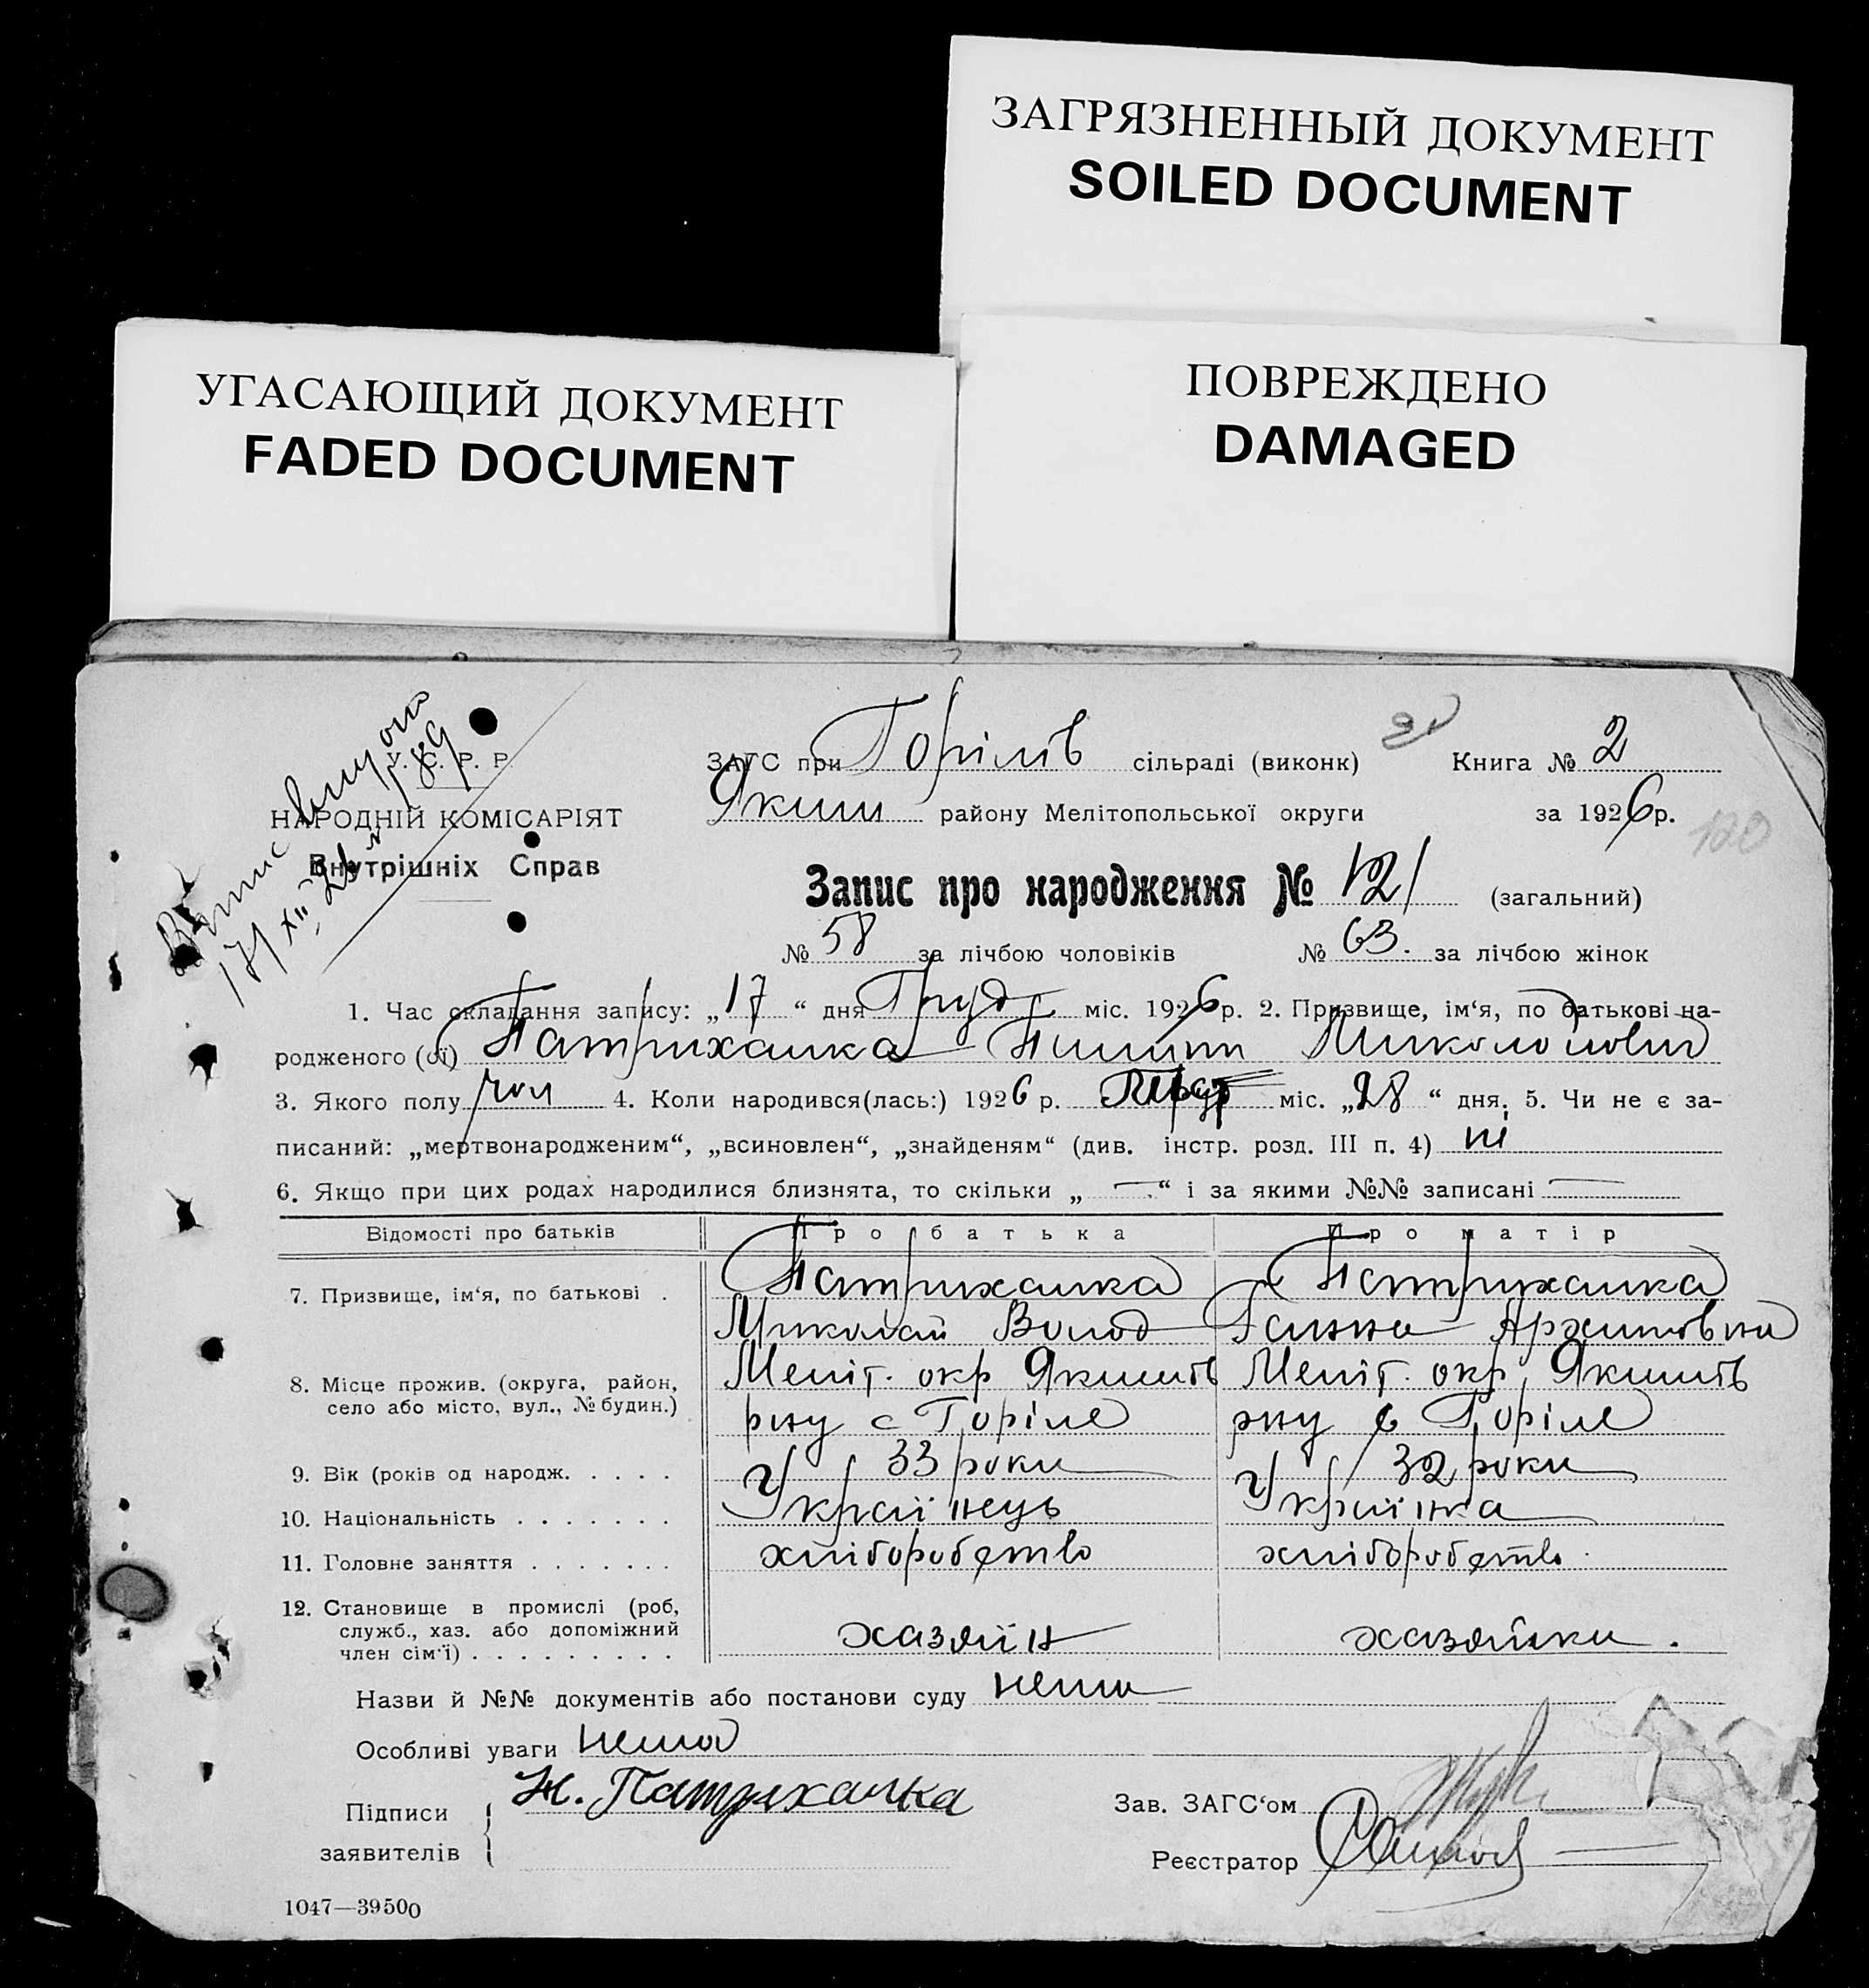 ЗАГРЯЗНЕННЫЙ ДОКУМЕНТ
SOILED DOCUMENT
УГАСАЮЩИЙ ДОКУМЕНТ
FADED DOCUMENT
ПОВРЕЖДЕНО
DAMAGED
У. С. Р. Р.
НАРОДНІЙ КОМІСАРІЯТ
Внутрішніх Справ
ЗАГС при Горілів сільраді (виконк) Книга № 2
Яким району Мелітопольської округи за 1926р.
Запис про народження № 121 (загальний)
№ 58 за лічбою чоловіків № 63. за лічбою жінок
1. Час складання запису: „17“ дня Груд міс. 1926р. 2. Призвище, ім‘я, по батькові на-
родженого (ої) Патрихалка Пилип Миколойович
3. Якого полу чол 4. Коли народився(лась:) 1926 р. міс. „28“ дня. 5. Чи не є за-
писаний: „мертвонародженим“, „всиновлен“, „знайденям“ (див. інстр. розд. III п. 4) ні
6. Якщо при цих родах народилися близнята, то скільки „—“ і за якими №№ записані —
Відомості про батьків Про батька Про матір
7. Призвище, ім‘я, по батькові . Патрихалка Патрихалка
Миколай Волод Ганна Архипівна
8. Місце прожив. (округа, район, Меліт. окр Якимів Меліт. окр. Якимів
село або місто, вул., № будин.) рну с Горіле рну с Горіле
9. Вік (років од народж. . . . . 33 роки 32 роки
10. Національність . . . . . . . Українець Українка
11. Головне заняття . . . . . . . хліборобство хліборобство.
12. Становище в промислі (роб,
служб., хаз. або допоміжний хазяїн хазяйка.
член сім‘ї) . . . . . . . . .
Назви й №№ документів або постанови суду нема
Особливі уваги нема
Підписи Н. Патрихалка Зав. ЗАГС‘ом
заявителів Реєстратор
1047—39500